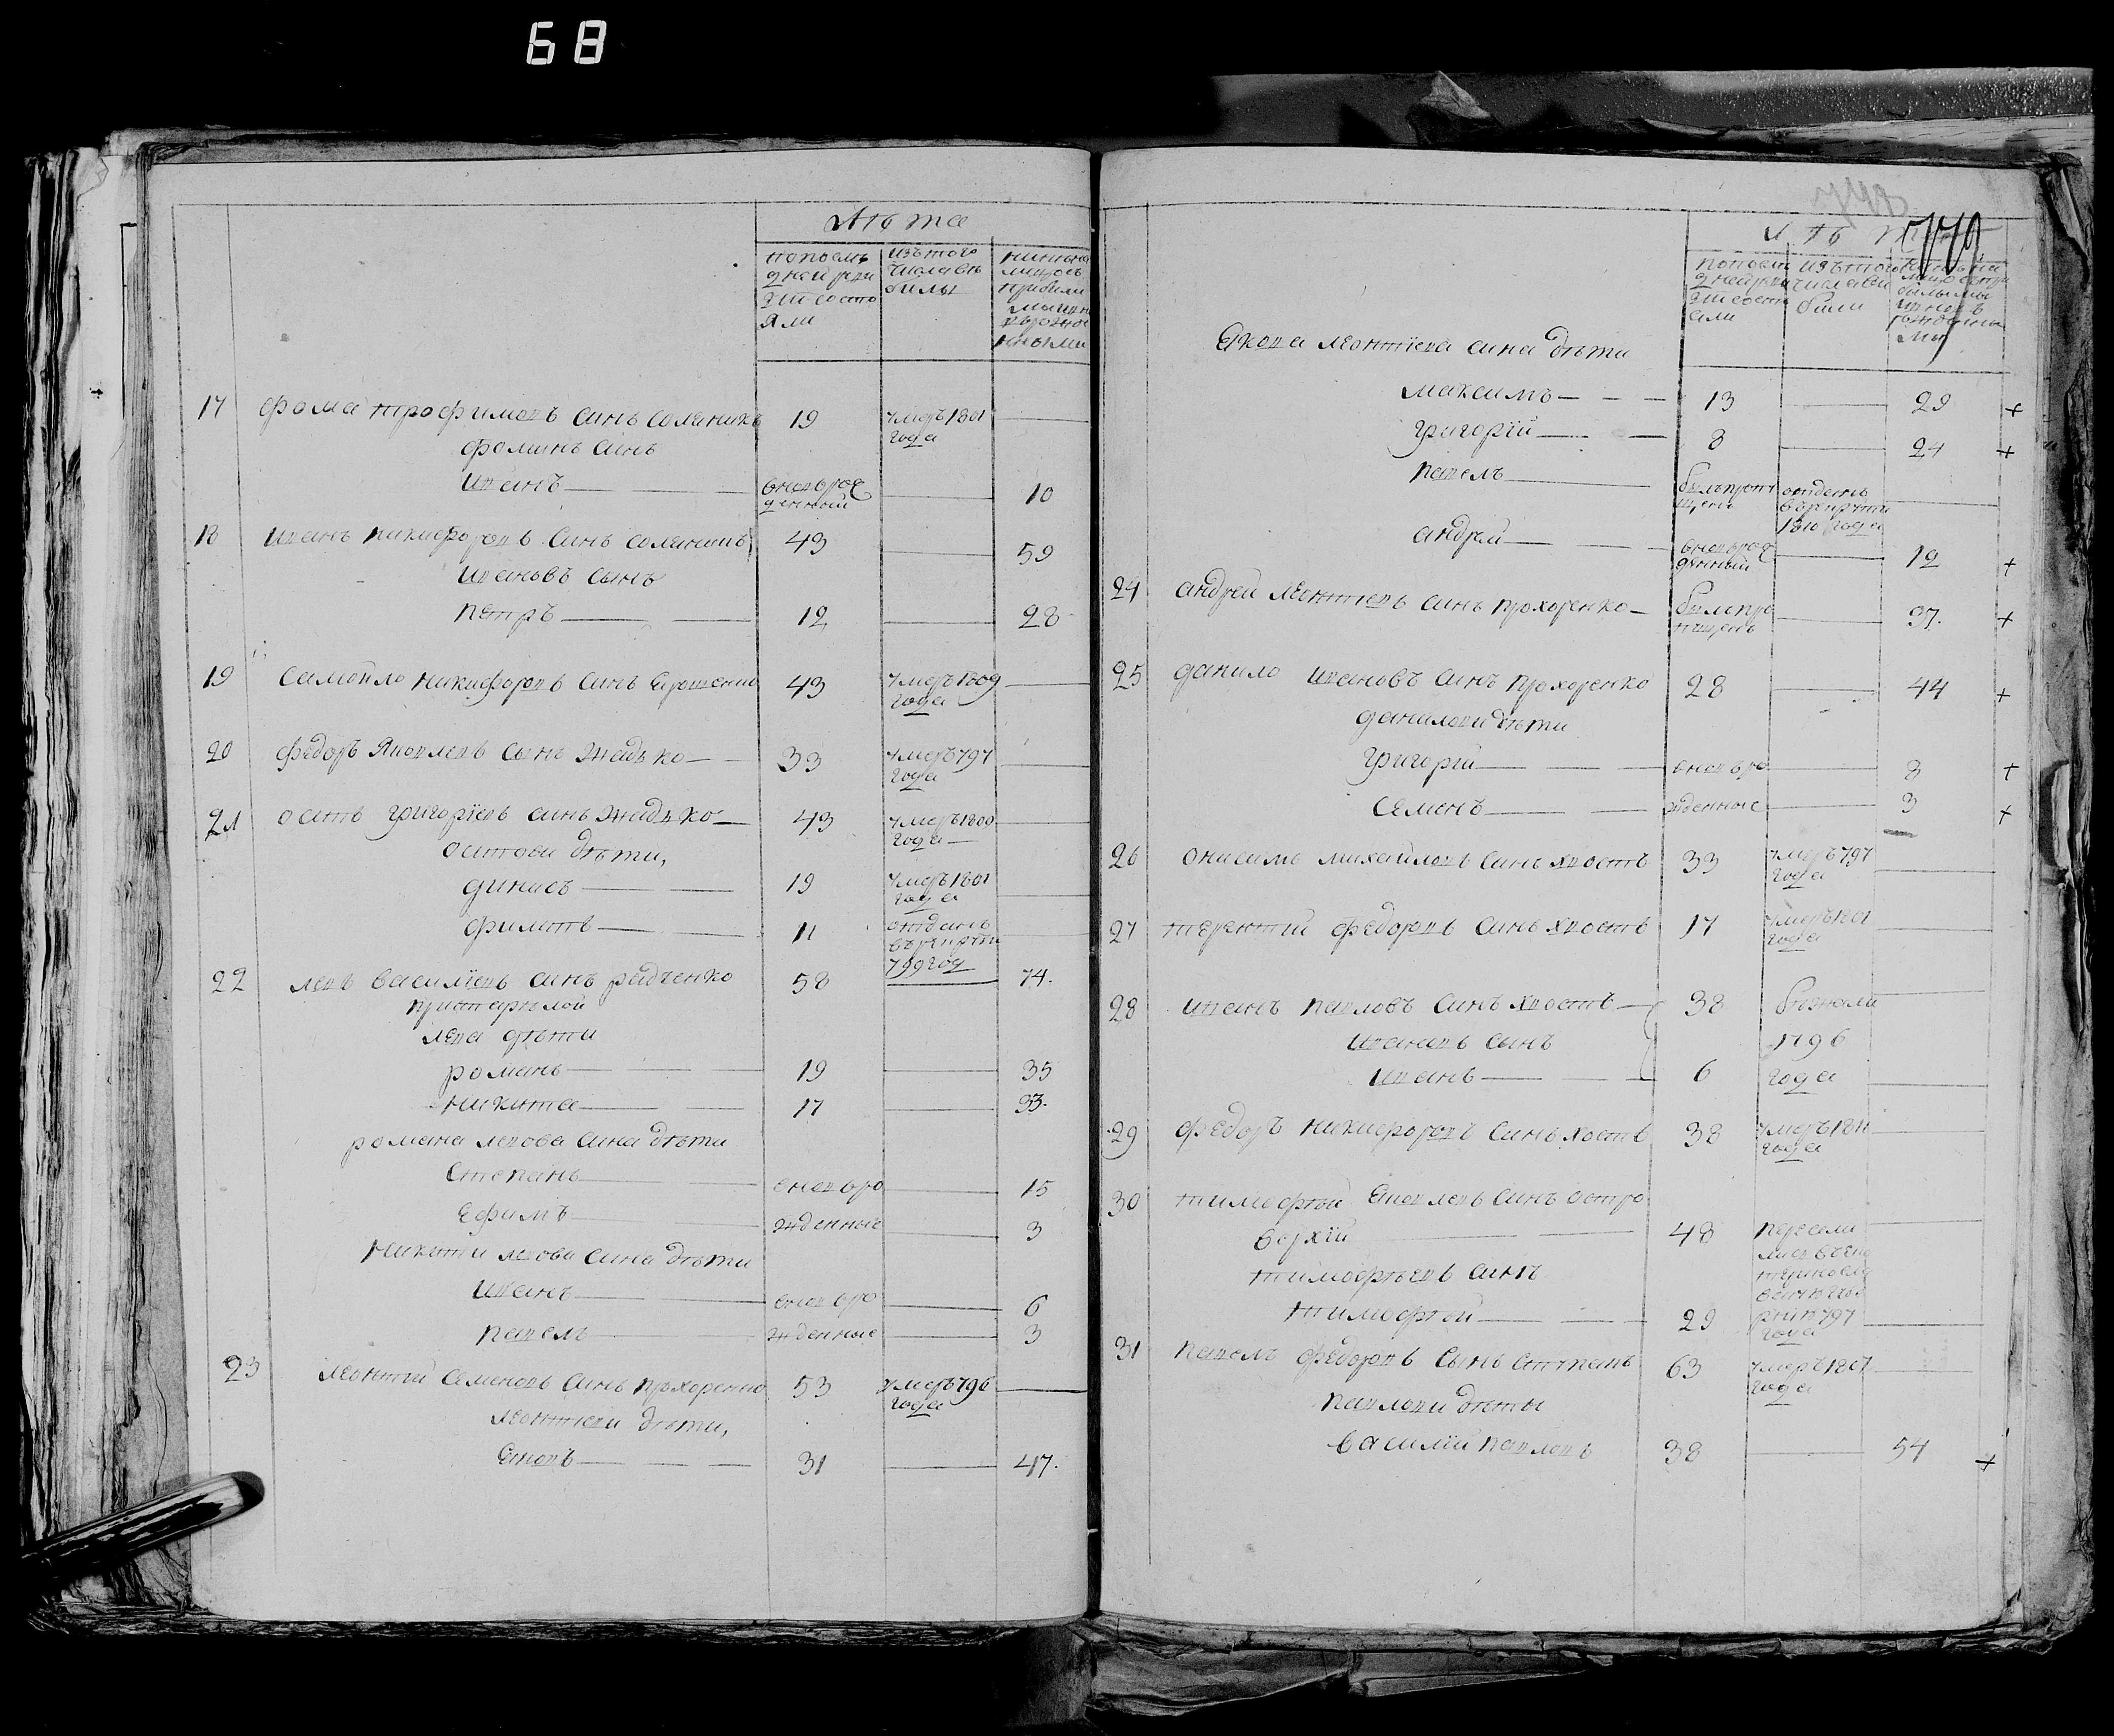 68
Лѣта
По последней ревизіи состояли
Изъ того числа выбыли
Ныне на лицо съ прибылыми и новорожденными
17 Фома Трофимовъ синъ Соляникъ 19 умеръ 1801 года
Фоминъ синъ
Иванъ вновьрожденный 10
18 Иванъ Никифоровъ Синъ Соляникъ 43 59
Ивановъ Сынъ
Петръ 12 28
19 Самойло Никифоровъ Синъ 43 умеръ 1809 года
20 Федоръ Яковлевъ Сынъ Жадько 33 умеръ 797 года
21 Осипъ Григоріевъ синъ Жадько 43 умеръ 1800 года
Осиповы дѣти,
Динисъ 19 умеръ 1801 года
Филипъ 11 отданъ въ рекруты 799 год
22 Левъ Василіевъ синъ Радченко 58 74.
Престарѣлой
Лева дѣти
Романъ 19 35
Никита 17 33.
Романа Левова сина дѣти
Степанъ вновьро 15
Ефимъ жденные 3
Никиты Левова Сина дѣти
Иванъ вновьро 6
Павелъ жденные 3
23 Леонтій Семеновъ Синъ Прохоренко 53 умеръ 796 года
Леонтіевы дѣти,
Ековъ 31 47.
Лѣта
По последней ревизіи состояли
Изъ того числа выбыли
Екова Леонтіева сина дѣти
Максимъ 13 29 +
Григорій 8 24 +
Павелъ былъ пропущенъ отданъ в рекруты 1810 года
Андрей вновьрожденный 12 +
24 Андрей Леонтіевъ синъ Прохоренко былъ пропущенъ 37. +
25 Данило Ивановъ Синъ Прохоренко 28 44 +
Даниловы дѣти
Григорій вновьро 8 +
Семенъ жденные 3 +
26 Онисимъ Михайловъ Синъ Хвостъ 33 умеръ 797 года
27 Терентий Федоровъ Синъ Хвостъ 17 умеръ года
28 Иванъ Павловъ Синъ Хвостъ 38 бежали
Ивановъ Сынъ 1796
Иванъ 6 года
29 Федоръ Никифоровъ Синъ Хостъ 38 умеръ года
30 Тимофей Яковлевъ Синъ Остро
верхій 48
Тимофѣевъ синъ
Тимофей 29 797 года
31 Павелъ Федоровъ Сынъ 63 умеръ 1807 года
Павловы дѣты
Василій Павловъ 38 54 +